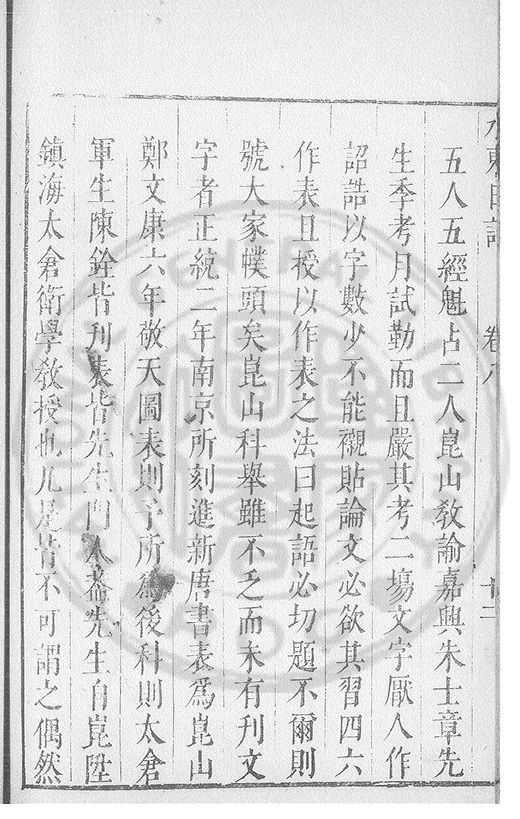 水東日記 卷八 十二
五人五經魁占二人崑山教諭嘉興朱士章先
生季考月試勤而且嚴其考二場文字厭人作
詔誥以字數少不能襯貼論文必欲其習四六
作表且授以作表之法曰起語必切題不爾則
號大家幞頭矣崑山科舉雖不乏而未有刊文
字者正統二年南京所刻進新唐書表爲崑山
鄭文康六年敬天圖表則予所爲後科則太倉
軍生陳銓皆刊表皆先生門人蓋先生自崑陞
鎮海太倉衛學教授也凡是皆不可謂之偶然